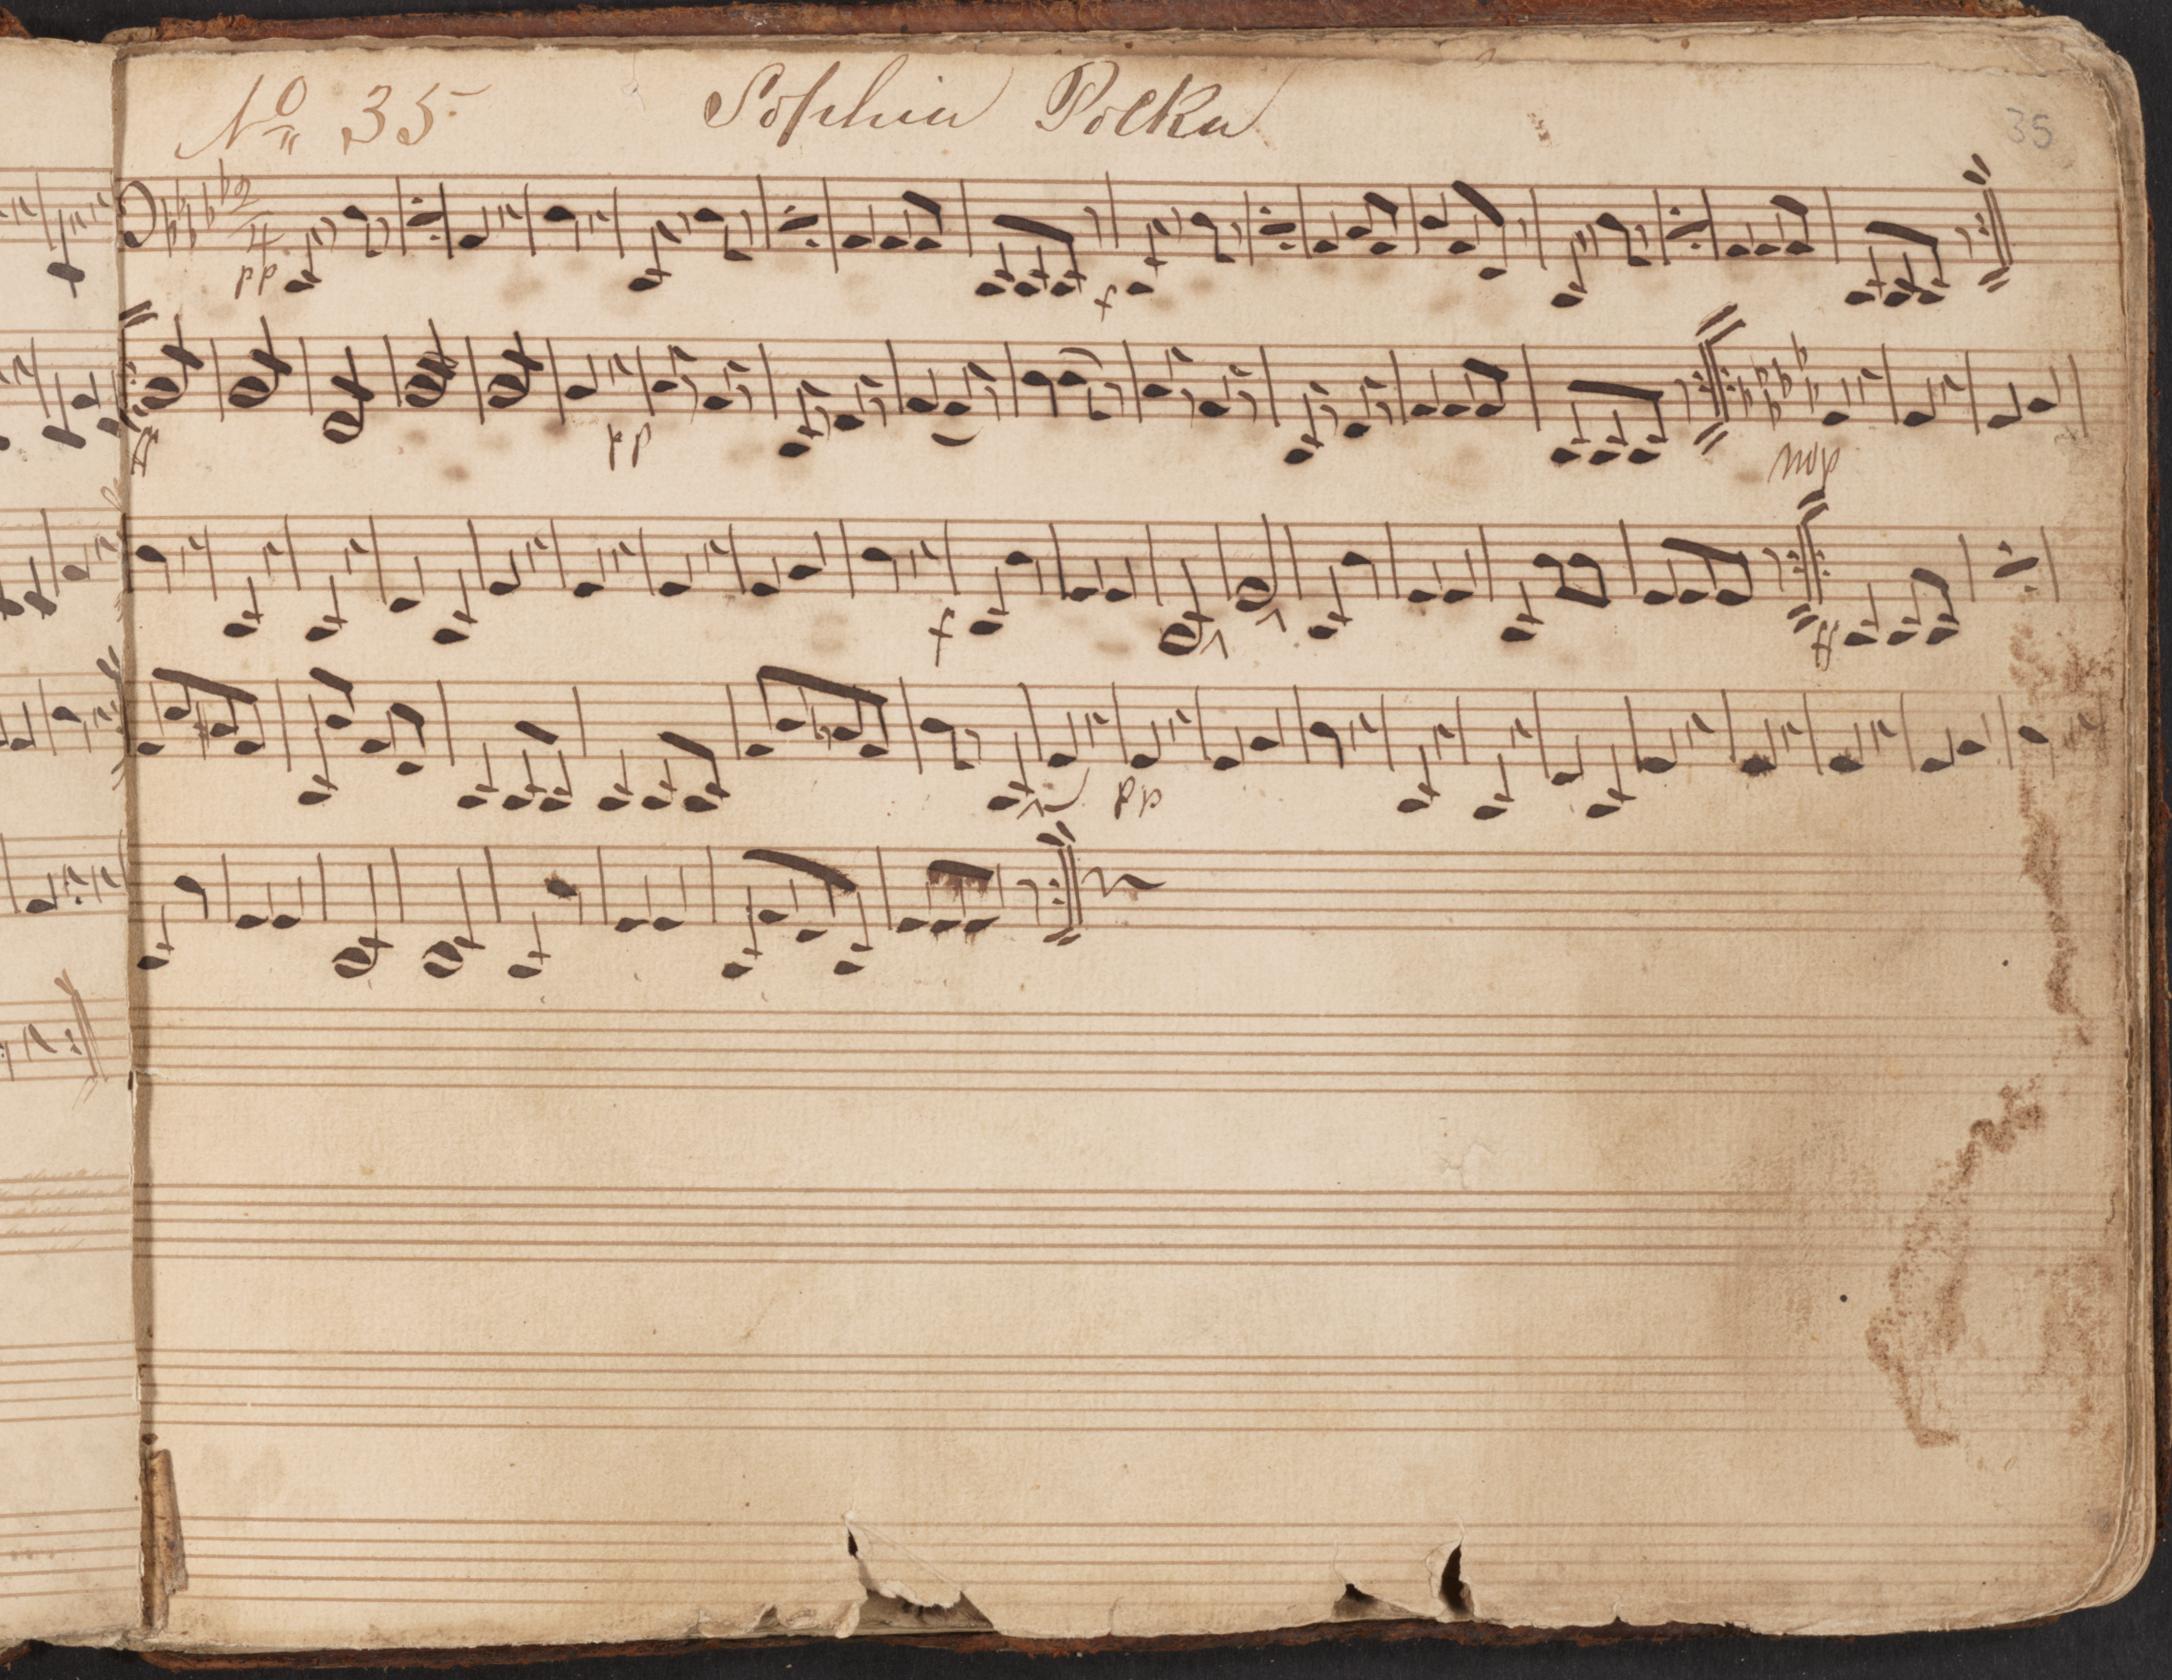 No 35 Sophia Polka 35
2
4
pp f
ff pp mop
f ff
pp